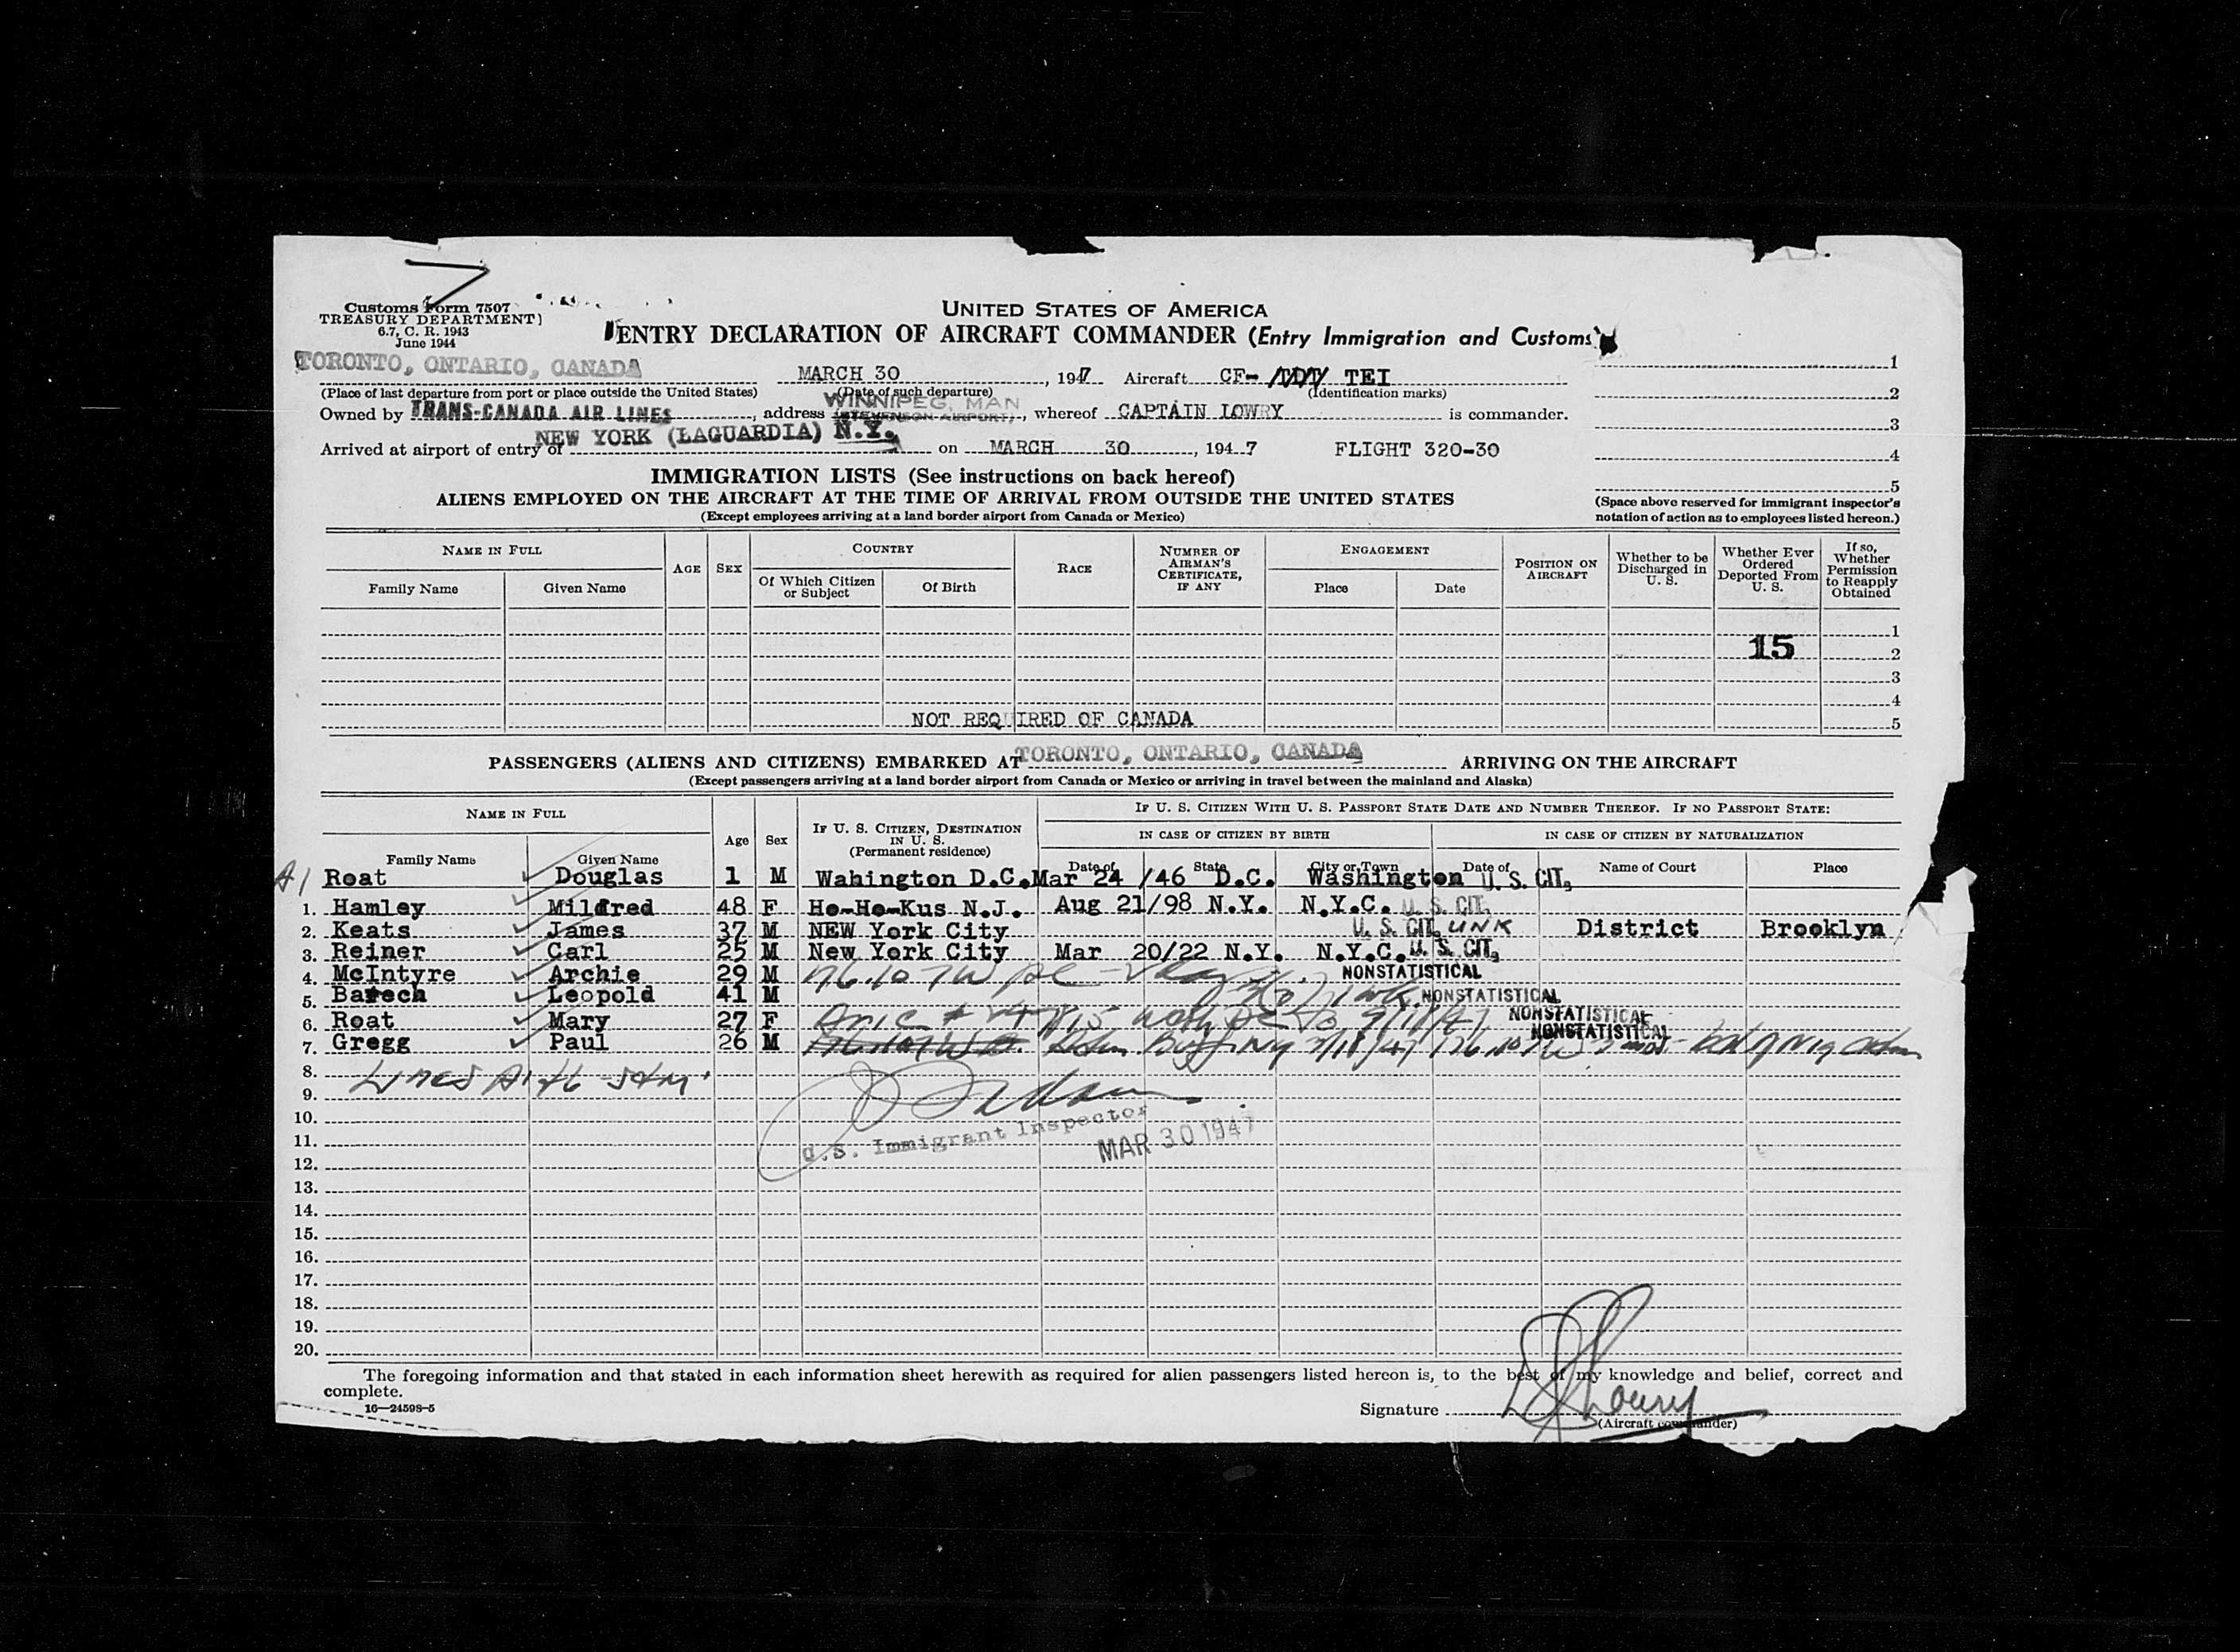 Customs Form 7507
TREASURY DEPARTMENT)
6.7, C. R. 1943
June 1944
UNITED STATES OF AMERICA
ENTRY DECLARATION OF AIRCRAFT COMMANDER (Entry Immigration and Customs
TORONTO, ONTARIO, CANADA MARCH 30, 1947 Aircraft CF- TEI
(Place of last departure from port or place outside the United States) (Date of such departure) (Identification marks)
WINNIPEG, MAN
Owned by TRANS-CANADA AIR LINES, address (STEVENSON AIRPORT), whereof CAPTAIN LOWRY is commander.
Arrived at airport of entry of NEW YORK (LAGUARDIA) N.Y. on MARCH 30, 1947 FLIGHT 320-30
1
2
3
4
5
(Space above reserved for immigrant inspector's
notation of action as to employees listed hereon.)
IMMIGRATION LISTS (See instructions on back hereof)
ALIENS EMPLOYED ON THE AIRCRAFT AT THE TIME OF ARRIVAL FROM OUTSIDE THE UNITED STATES
(Except employees arriving at a land border airport from Canada or Mexico)
NAME IN FULL AGE SEX COUNTRY RACE NUMBER OF AIRMAN'S CERTIFICATE, IF ANY ENGAGEMENT POSITION ON AIRCRAFT Whether to be Discharged in U. S. Whether Ever Ordered Deported From U. S. If so, Whether Permission to Reapply Obtained
Family Name Given Name Of Which Citizen or Subject Of Birth Place Date
1
15 2
3
4
NOT REQUIRED OF CANADA 5
PASSENGERS (ALIENS AND CITIZENS) EMBARKED AT TORONTO, ONTARIO, CANADA ARRIVING ON THE AIRCRAFT
(Except passengers arriving at a land border airport from Canada or Mexico or arriving in travel between the mainland and Alaska)
NAME IN FULL Age Sex IF U. S. CITIZEN, DESTINATION IN U. S. (Permanent residence) IF U. S. CITIZEN WITH U. S. PASSPORT STATE DATE AND NUMBER THEREOF. IF NO PASSPORT STATE:
IN CASE OF CITIZEN BY BIRTH IN CASE OF CITIZEN BY NATURALIZATION
Family Name Given Name Date of State City or Town Date of Name of Court Place
A1 Roat Douglas 1 M Wahington D.C. Mar 24 /46 D.C. Washington U. S. CIT.
1. Hamley Mildred 48 F Ho-Ho-Kus N.J. Aug 21/98 N.Y. N.Y.C. U. S. CIT.
2. Keats James 37 M NEW York City U. S. CIT. UNK District Brooklyn
3. Reiner Carl 25 M New York City Mar 20/22 N.Y. N.Y.C. U. S. CIT.
4. McIntyre Archie 29 M NONSTATISTICAL
5. Barech Leopold 41 M NONSTATISTICAL
6. Roat Mary 27 F NONSTATISTICAL
7. Gregg Paul 26 M NONSTATISTICAL
8.
9.
10.
U.S. Immigrant Inspector
11. MAR 30 1947
12.
13.
14.
15.
16.
17.
18.
19.
20.
The foregoing information and that stated in each information sheet herewith as required for alien passengers listed hereon is, to the best of my knowledge and belief, correct and
complete.
16—24598-5
Signature Lowry
(Aircraft commander)